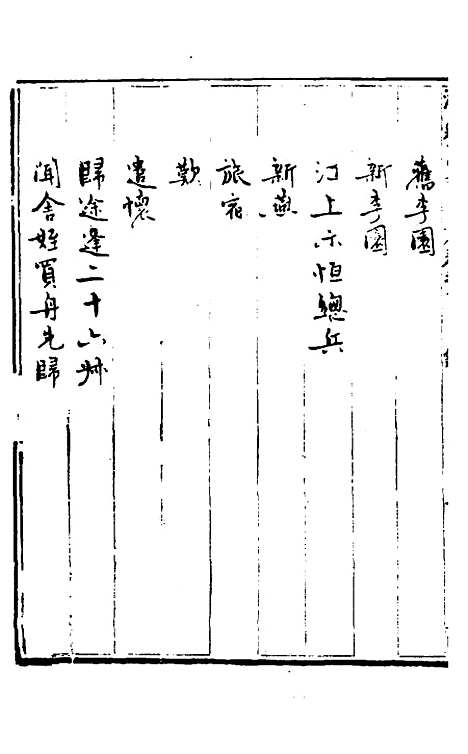 舊李園
新李園
江上示恒總兵
新燕
旅宿
歎
遣懷
歸途逢二十六叔
聞舍姪買舟先歸